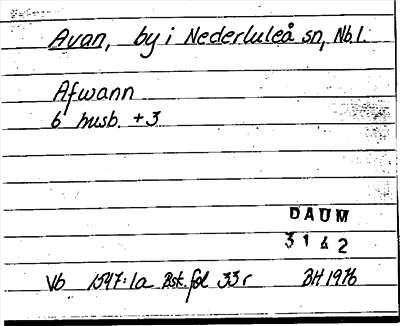 Avan, by i Nederluleå sn, Nb.l.
Afwann
6 husb. + 3
DAUM
3142
Vb 1547:1a Bst. fol 33 r BH 1976